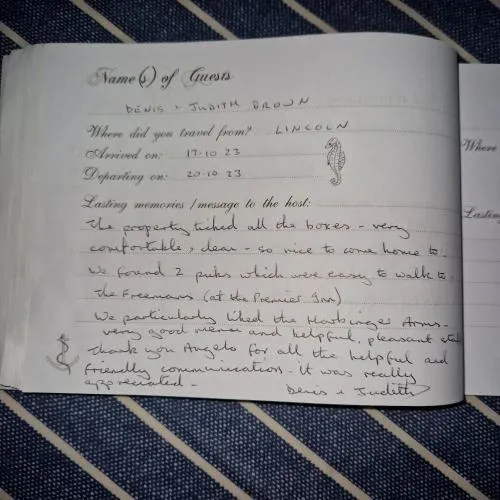 Name(s) of Guests
DENIS + JUDITH BROWN
Where did you travel from? LINCOLN
Arrived on: 17.10 23
Departing on: 20.10.23
Lasting memories / message to the host:
The property ticked all the boxes - very
comfortable, clean - so nice to come home to.
We found 2 pubs which were easy to walk to,
The Freemans (at the Premier Inn)
We particularly liked the Harbinger Arms-
very good menu and helpful, pleasant staff
Thank you Angelo for all the helpful and
friendly communication. It was really
appreciated -
Denis + Judith
Where
Lasting